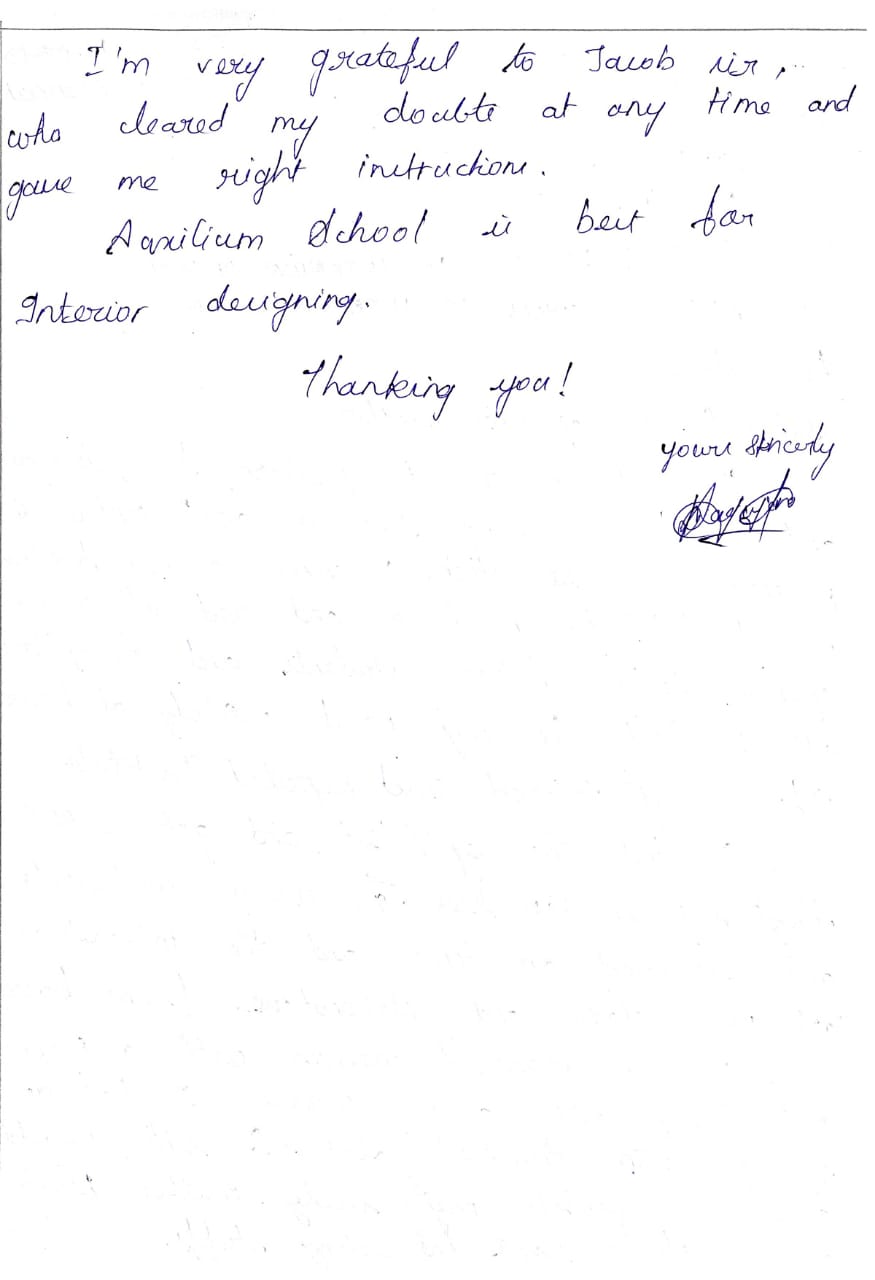 I'm very grateful to Jacob sir,
who cleared my doubts at any time and
gave me right instructions.
Auxilium School is best for
Interior designing.
Thanking you!
yours